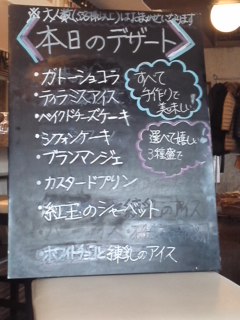 本日のデザート
・ガトーショコラ
・ティラミスアイス
・ベイクドチーズケーキ
・シフォンケーキ
・ブランマンジェ
・カスタードプリン
・紅玉のシャーベット
・ホワイトチョコと練乳のアイス
すべて
手作りで
美味しい
選べて嬉しい
3種盛て